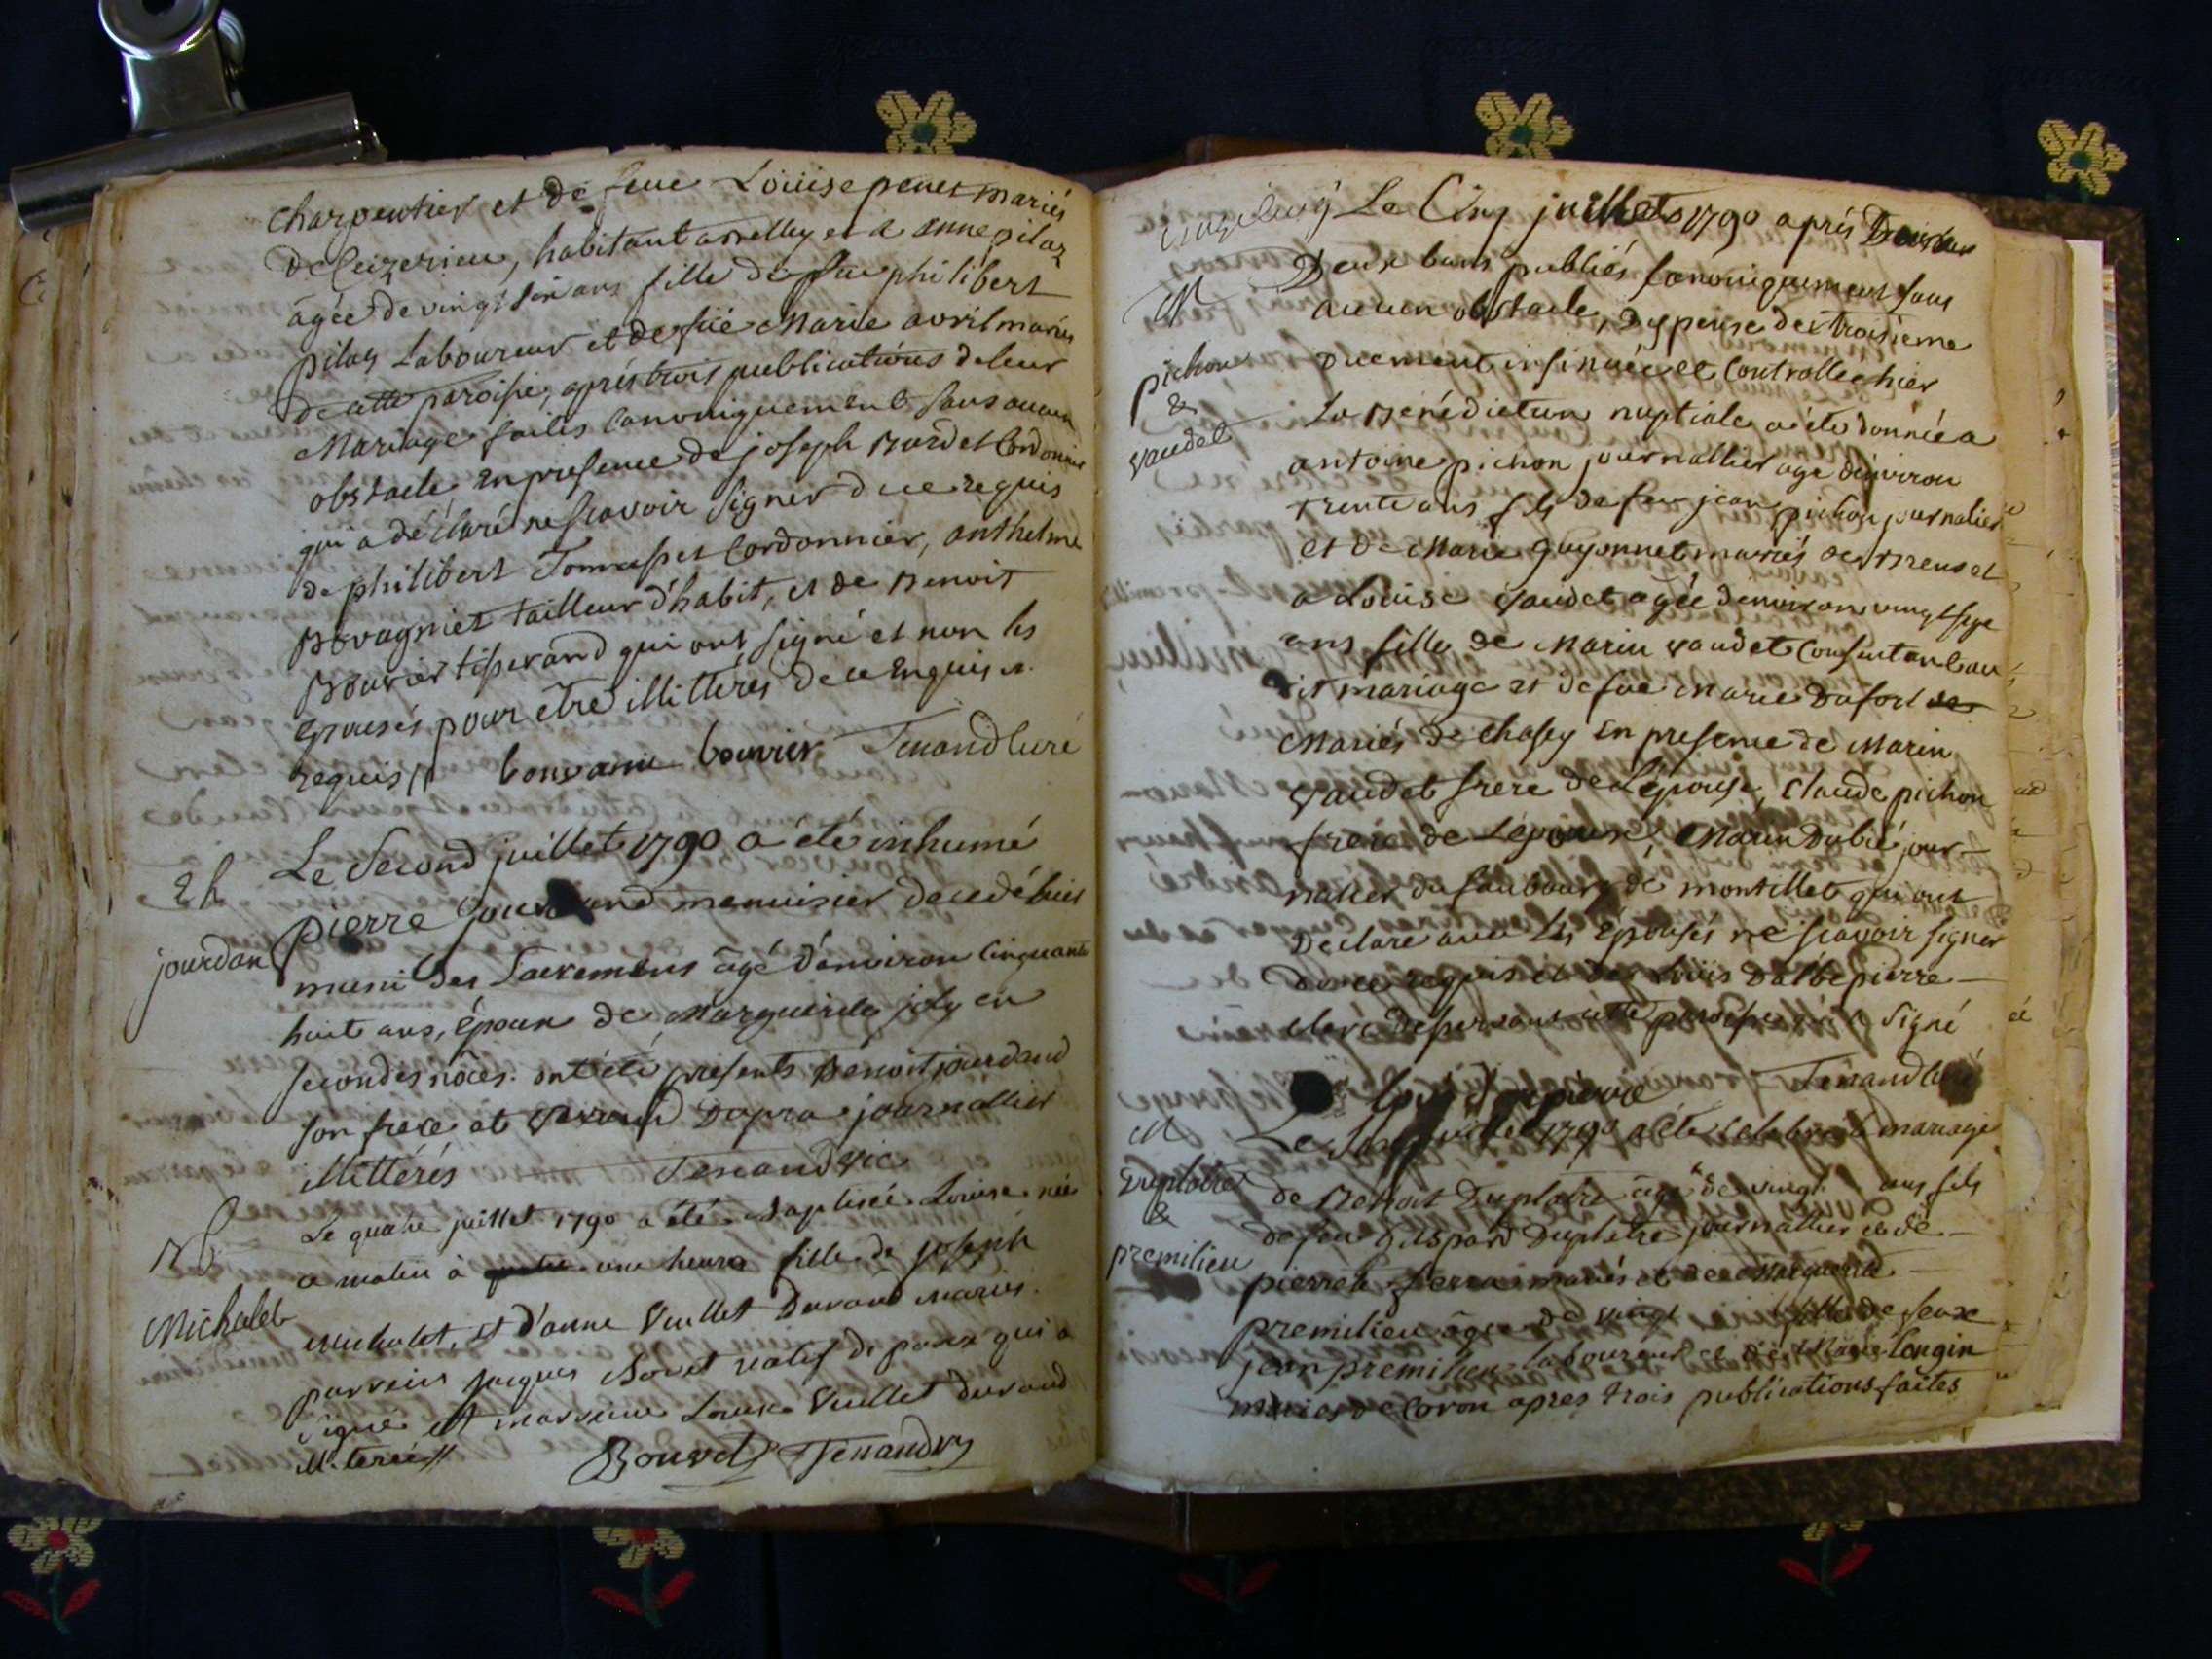 charpentier et de feue Loüise penet mariés
de Ceizerieu, habitant a Belley et a anne pilaz
âgée de vingt six ans fille de feu philibert
pilaz Laboureur et de füe Marie avril mariés
de cette paroisse, aprés trois publications de leur
Mariage faites Canoniquement sans aucun
obstacle, En presence de joseph Bardet Cordonnier
qui a déclaré ne sçavoir signer de ce requis
de philibert Cordonnier, anthelme
Bovagniet tailleur d'habit, et de Benoit
Bouvier tisserand qui ont signé et non les
Epousés pour être illitterés de ce Enquis et
requis // bouvier Tenand Curé
Le Second juillet 1790 a été inhumé
jourdan
pierre menuisier decedé hier
muni des Sacremens âgé d'environ Cinquante
huit ans, époux de Marguerite joly en
secondes nôces. ont été presents Benoit jourdand
son frere et Dupra journallier
illitterés Tenand vic
Le quatre juillet 1790 a été Baptisée Louise née
B
ce matin à une heure fille de joseph
Michalet
Michalet, et d'anne Vuillet Durand Mariés.
parrein jacques Bovet natif de qui a
signé et marreine Louise Vuillet durand
illiterée //
Bouvet Tenand vy
Le Cinq juillet 1790 aprés
M
Deux bans publiés Canoniquement sans
aucun obstacle, Dyspense du troisieme
Duement insinuée et Controllée hier
pichon
&
vaudet
La Bénédiction nuptiale a été donnée a
antoine pichon journallier age d'environ
trente ans fils de feu jean pichon journalier
et de Marie guyonnet mariés de et
a Loüise vaudet agée d'environ vingt sept
ans fille de Marin vaudet Consentant au
dit mariage et de füe Marie Dufort
Mariés de Chasey En presence de Marin
vaudet frere de L'épouse, Claude pichon
frere de L'époux, Marin Dubié jour
nalier du faubourg de montillet qui ont
Declaré avec Les Epousés ne sçavoir signer
de ce requis et de Loüis D'albepierre
clerc desservant cette paroisse qui a Signé
Loüis Tenand Curé
M
Le juillet 1790 a été célébré le mariage
Duplatre
&
premilieu
de Benoit Duplatre âgé de vingt ans fils
de feu Gaspard Duplatre journallier et de
pierrete mariés et de Marguerite
premilieu âgée de vingt fille de feux
jean premilieu laboureur et de Marie Longin
mariés de Coron apres trois publications faites